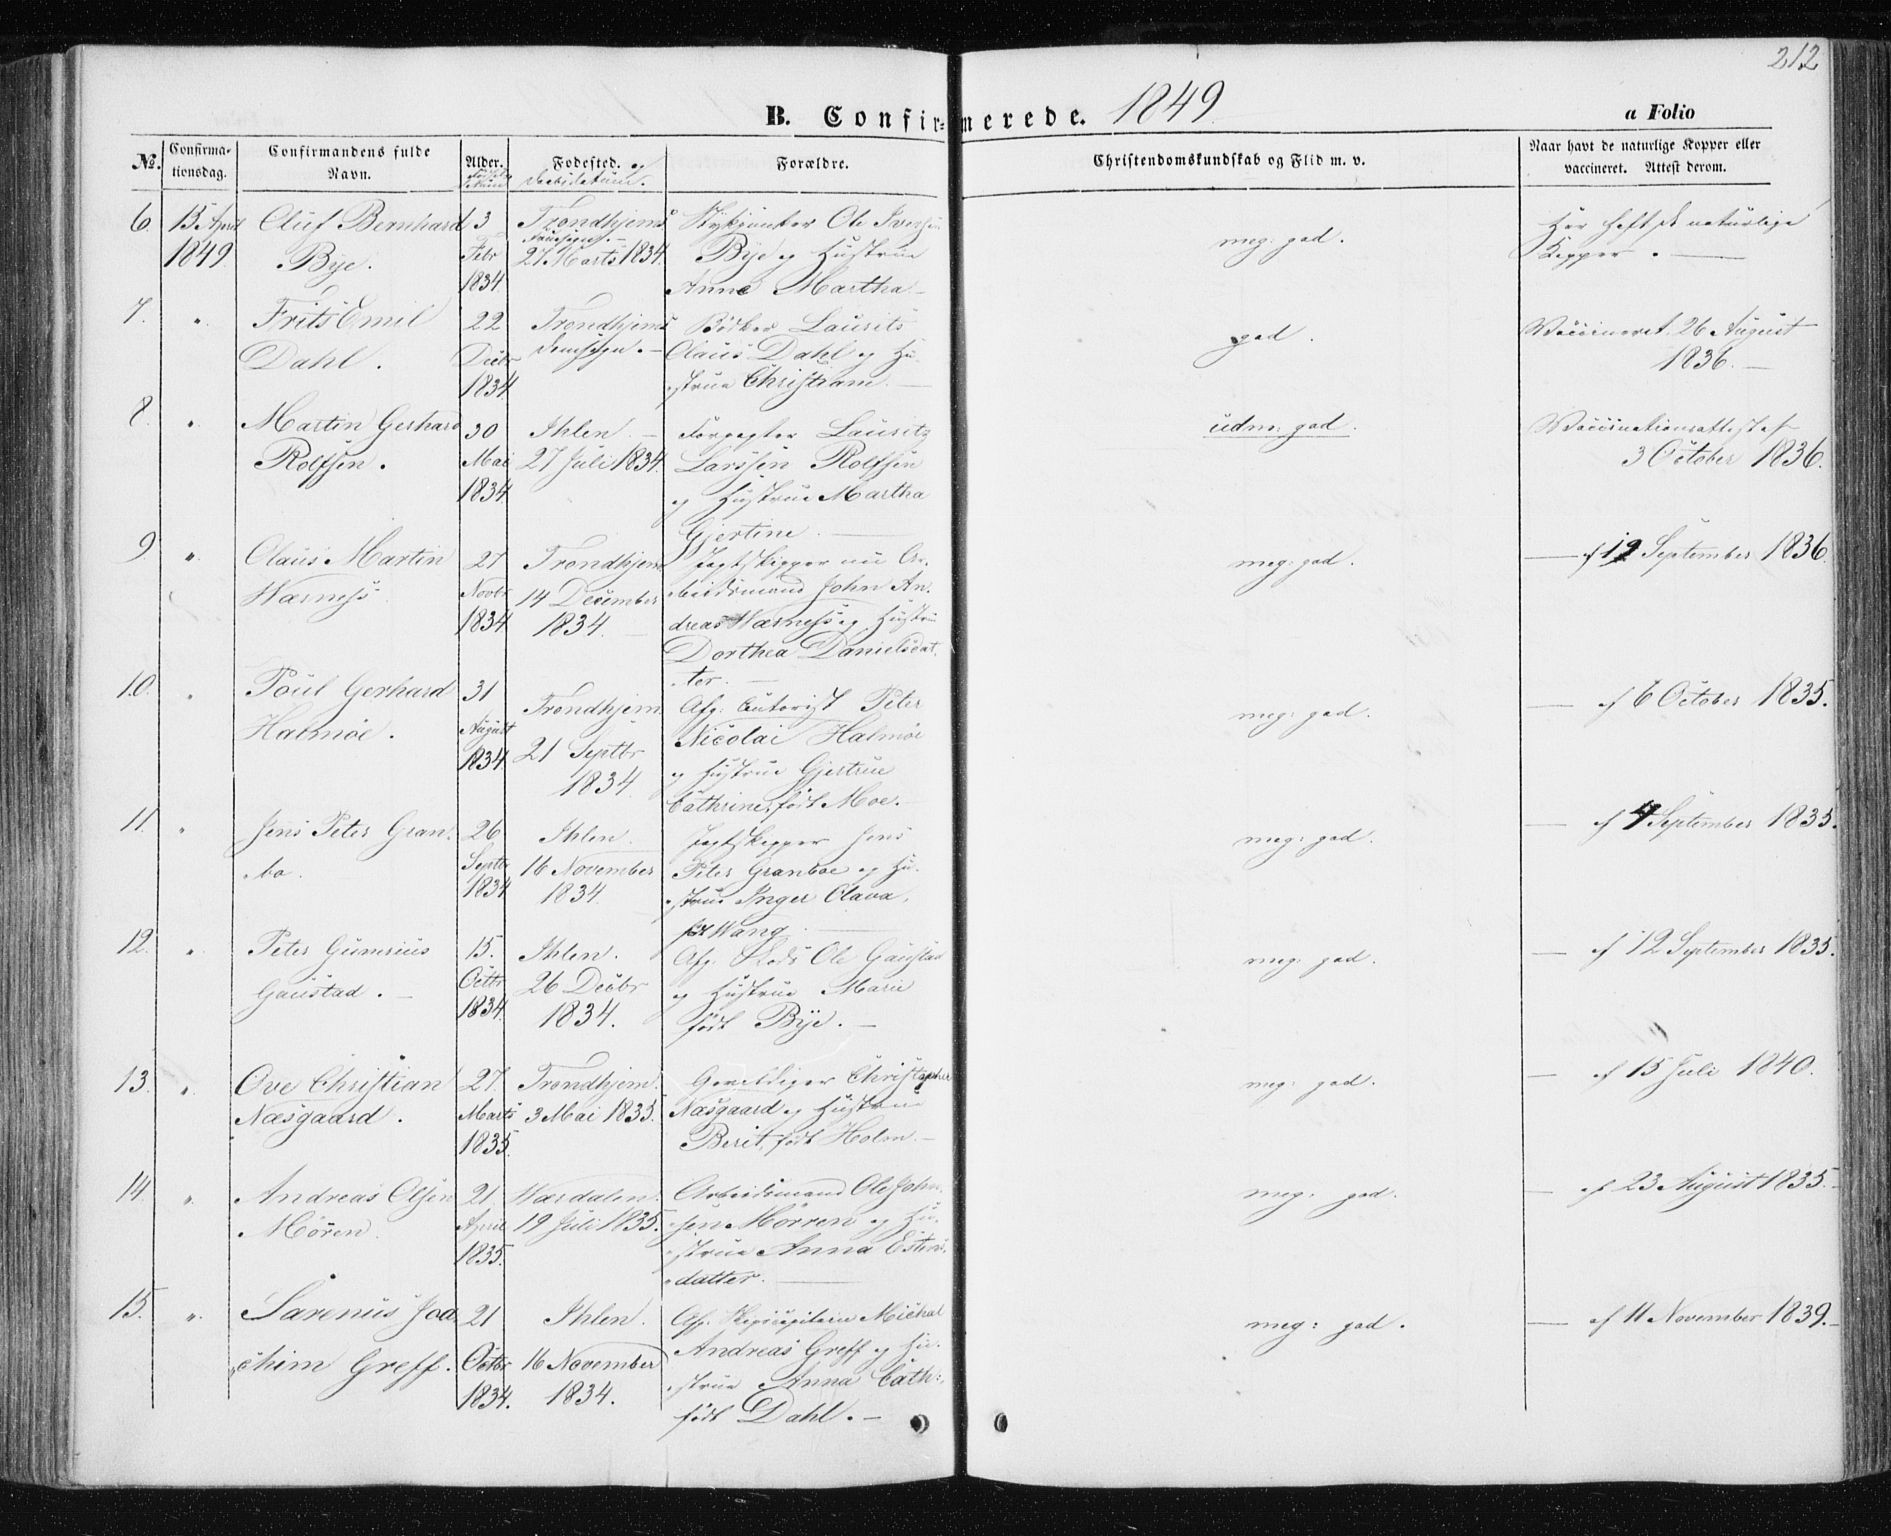 212
B. Confirmerede. 1849
a Folio
No. Confirmationsdag. Confirmandens fulde Navn. Alder. Fødested. og Daabsdatum. Forældre. Christendomskundskab og Flid m. v. Naar havt de naturlige Kopper eller vaccineret. Attest derom.
6. 15 April Oluf Bernhard 3 Trondhjems Ole Iversen meg: god. Har havt de naturlige
1849 Bye. Febr 27 Marts 1834. Bye og Hustrue Kopper. —
1834 Anne Martha —
7. " Frits Emil 22 Trondhjems Bødker Laurits god. Vaccineret 26 August
Dahl. Decbr Domsogn. — Claus Dahl og Hu- 1836. —
1834 strue Christiane. —
8. " Martin Gerhard 30 Ihlen. — Forpagter Lauritz udm: god. Vaccinationsattest af
Rolfsen. Mai 27 Juli 1834. Larssen Rolfsen 3 October 1836.
1834 og Hustrue Martha
Gjertine. —
9 " Claus Martin 27 Trondhjem Jagtskipper nu Ar- meg: god. — af 19 September 1836
Wærness Novbr 14 December beidsmand John An-
1834 1834. — dreas Wærness og Hustru
Dorthea Danielsdat-
ter. —
10. " Poul Gerhard 31 Trondhjem. Afg. Peter meg: god. — af 6 October 1835.
Halmøe. August 21 Septbr Nicolai Halmøe
1834. 1834. og Hustrue Gjertrue
Cathrine, født Moe. —
11. " Jens Peter Gran- 26 Ihlen. Jagtskipper Jens meg: god. — af 4 September 1835.
bo. Septbr 16 November Peter Granboe og Hu-
1834 1834 strue Inger Olava,
født Wang. —
12. " Peter Gunerius 15. Ihlen. Afg. Ole Gaustad meg: god. — af 12 September 1835.
Gaustad. — Octbr 26 Decbr og Hustrue Marie
1834. 1834. født Bye. —
13. " Ove Christian 27. Trondhjem. Gevaldiger Christopher meg: god. — af 15 Juli 1840.
Næsgaard. Marts 3 Mai 1835. Næsgaard og Hustrue
1835. Berit, født Holm. —
14. " Andreas Olsen 21 Wærdalen. Arbeidsmand Ole John- meg: god. — af 23 August 1835. —
Mören. April 19 Juli 1835. sen Mörren og Hu-
1835. strue Anna Estens-
datter. —
15. " Sarenus Joa- 21 Ihlen. Afg. Michal meg: god. — af 11 November 1839. —
chim Greff. Octbr 16 November Andreas Greff og Hu-
1834. 1834. strue Anna Cath:,
født Dahl. —